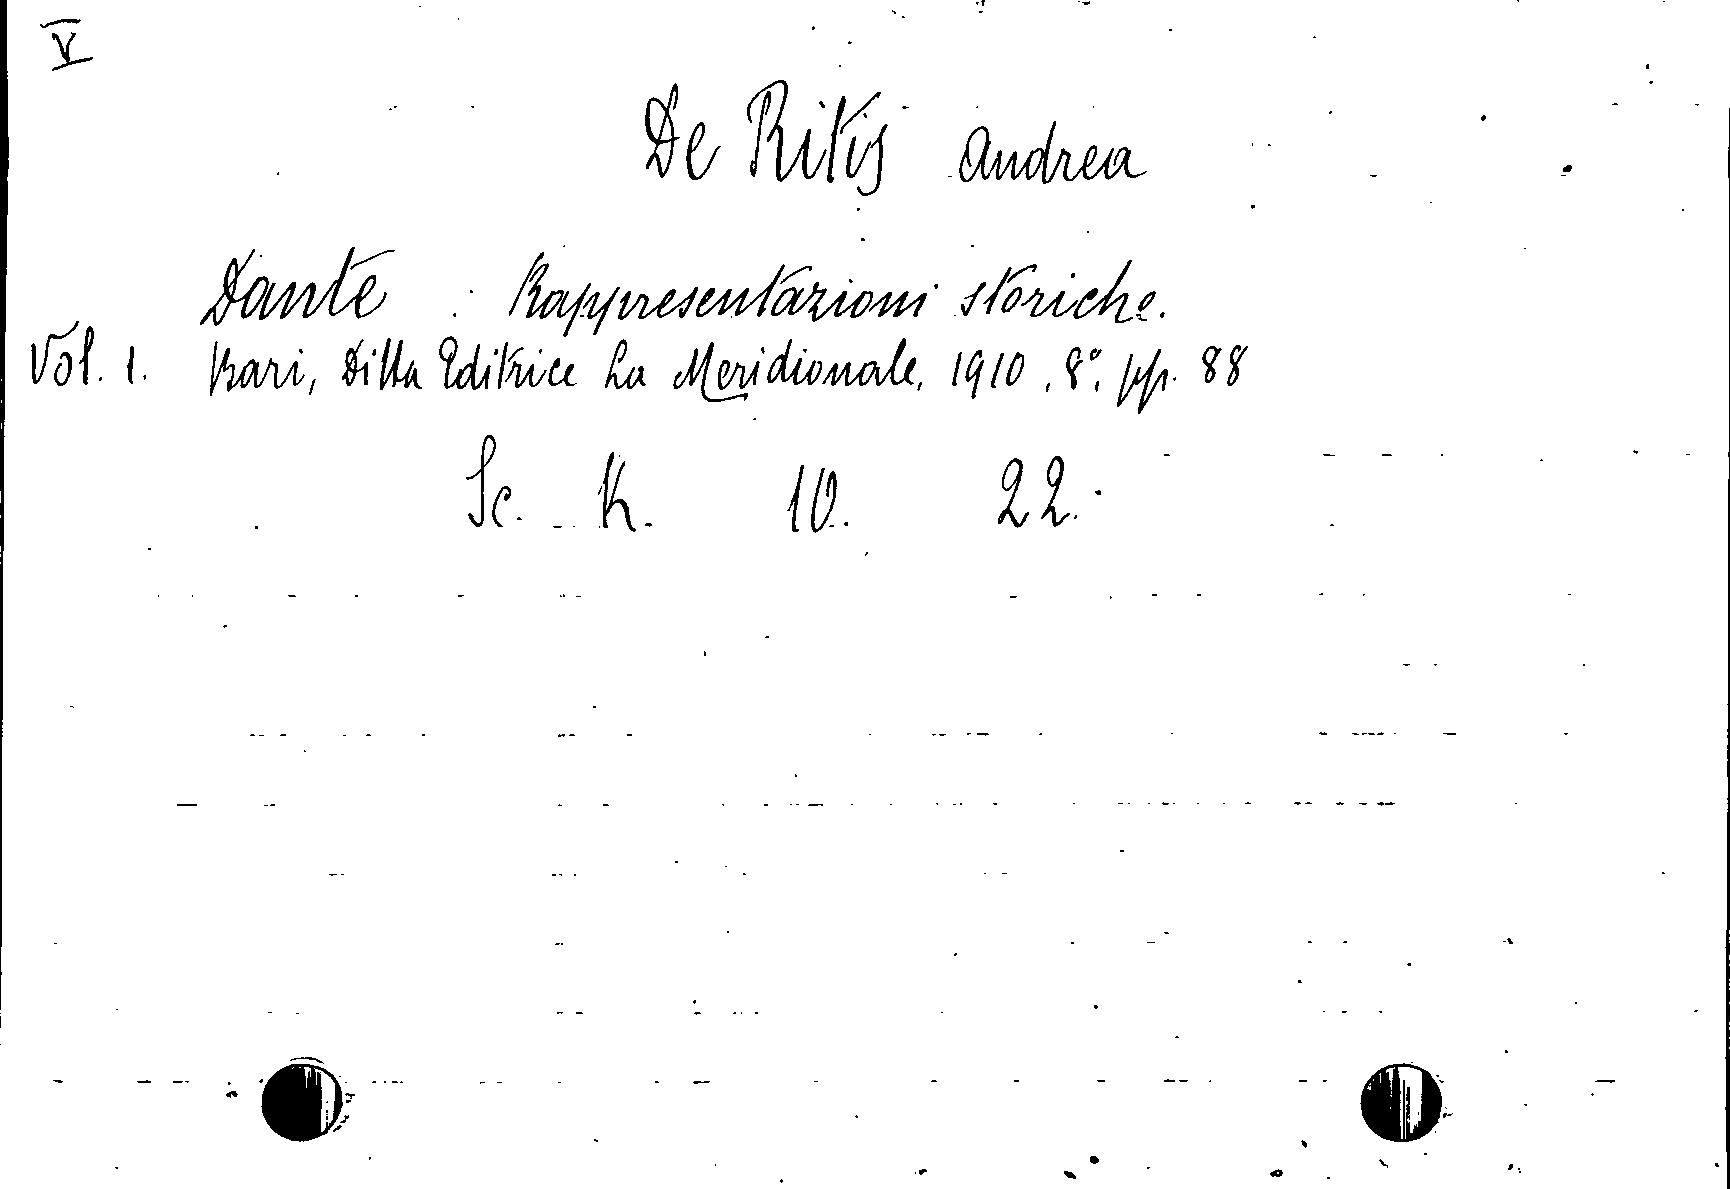 V
De Ritis Andrea
Dante : Rappresentazioni storiche.
Vol. 1. Bari, Ditta Editrice La Meridionale, 1910, 8°, pp. 88
Sc. K. 10. 22.